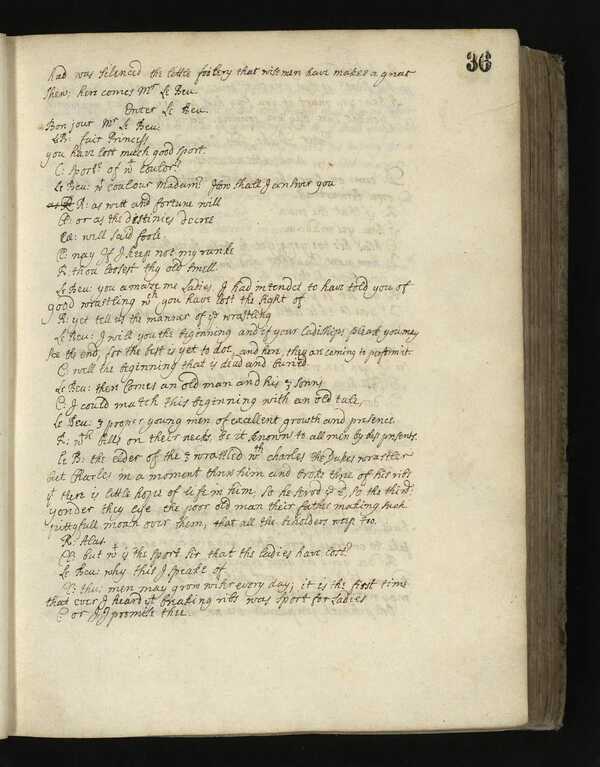 36
had was silenced the little foolery that wise men have makes a great
shew: here comes Mr Le Beu.
Enter Le Beu.
Bon jour Mr Le Beu.
LeB: fair Princess
you have lost much good sport
C: sport? of wt coulor?
Le Beu: wt coulour Madam? How shall I answer you
R: as witt and fortune will
Cl: or as the destinies decree
Ce: well said foole.
C: nay if I keep not my ranke
R: thou loosest thy old smell
Le Beu: you amaze me Ladies. I had intended to have told you of
good wrastling wch you have lost the sight of
R: yet tell us the manner of ye wrastling
Le Beu: I will you the beginning and if your Ladiships please you may
see the end, for the best is yet to doe, and here, they are coming to performe it
C: well the beginning that is dead and buried.
Le Beu: then comes an old man and his 3 sonns
C: I could match this beginning with an old tale,
Le Beu: 3 proper young men of excellent growth and presence.
R: wth bills on their necks, be it known to all men by these presents.
Le B: the elder of the 3 wrastled wth charles the Dukes wrastler
but Charles in a moment threw him and broke three of his ribs
yt there is little hopes of life in him, so he servd ye 2d, so the third:
yonder they lye the poor old man their father making such
pittyfull moan over them, that all the beholders weep too.
R: Alas.
Cl: but wt is the sport Sir that the ladies have lost?
Le Beu: why this I speake of
Cl: thus men may grow wiser every day; it is the first time
that ever I heard yt breaking ribs was sport for Ladies
C: or I, I promise thee.